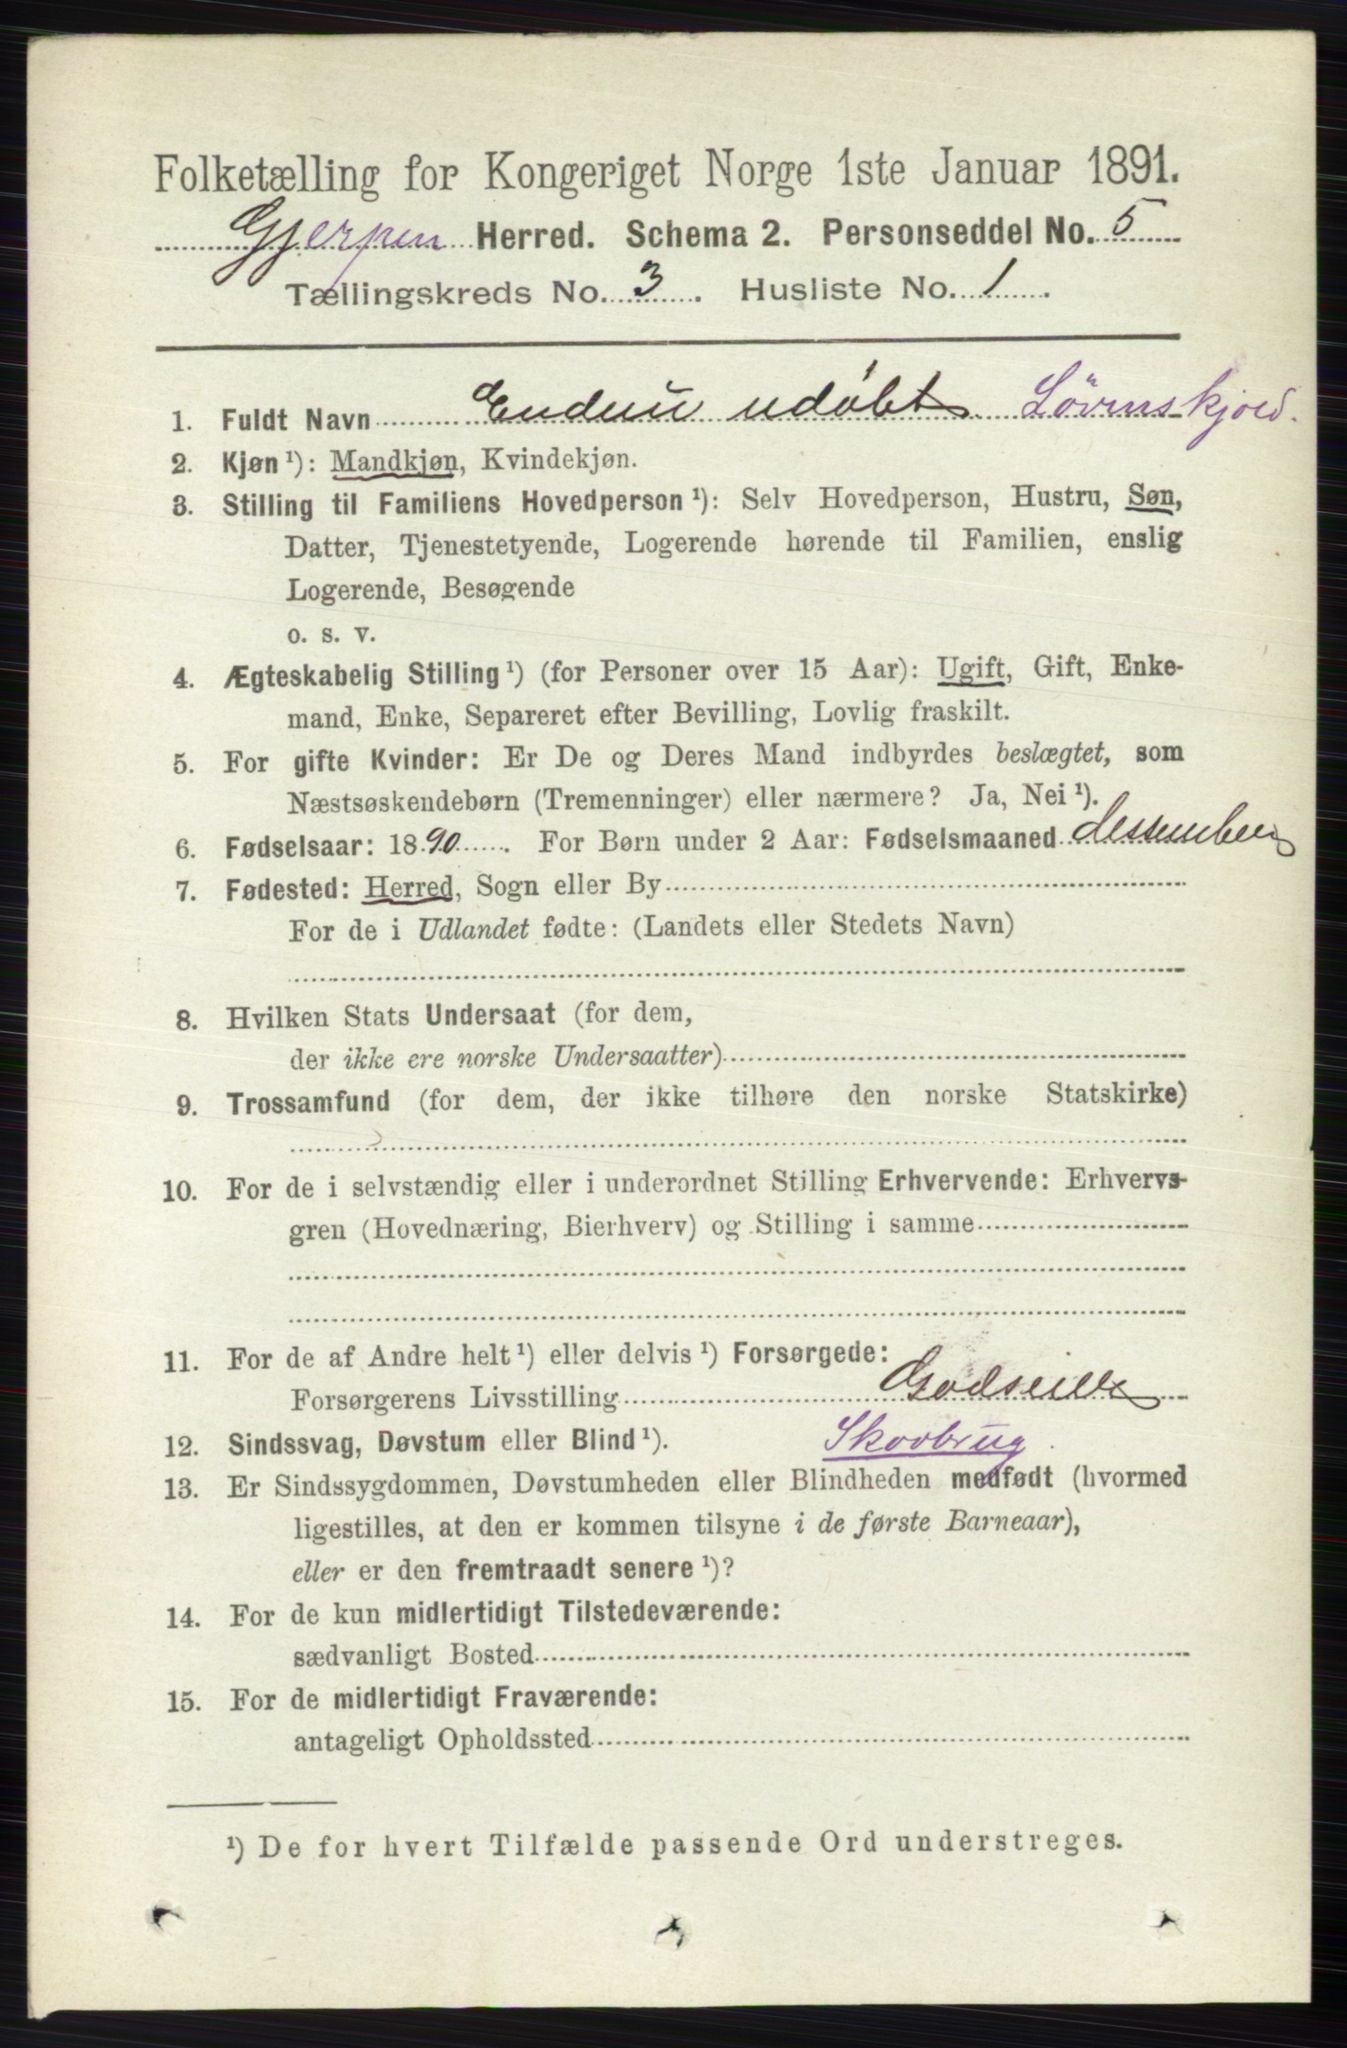 Folketælling for Kongeriget Norge 1ste Januar 1891.
Gjerpen Herred. Schema 2. Personseddel No. 5
Tællingskreds No. 3. Husliste No. 1.
1. Fuldt Navn Endnu udøbt Løvenskjold.
2. Kjøn ¹): Mandkjøn, Kvindekjøn.
3. Stilling til Familiens Hovedperson ¹): Selv Hovedperson, Hustru, Søn,
Datter, Tjenestetyende, Logerende hørende til Familien, enslig
Logerende, Besøgende
o. s. v.
4. Ægteskabelig Stilling ¹) (for Personer over 15 Aar): Ugift, Gift, Enke-
mand, Enke, Separeret efter Bevilling, Lovlig fraskilt.
5. For gifte Kvinder: Er De og Deres Mand indbyrdes beslægtet, som
Næstsøskendebørn (Tremenninger) eller nærmere? Ja, Nei ¹).
6. Fødselsaar: 1890. For Børn under 2 Aar: Fødselsmaaned dessember
7. Fødested: Herred, Sogn eller By
For de i Udlandet fødte: (Landets eller Stedets Navn)
8. Hvilken Stats Undersaat (for dem,
der ikke ere norske Undersaatter)
9. Trossamfund (for dem, der ikke tilhøre den norske Statskirke)
10. For de i selvstændig eller i underordnet Stilling Erhvervende: Erhvervs-
gren (Hovednæring, Bierhverv) og Stilling i samme
11. For de af Andre helt ¹) eller delvis ¹) Forsørgede:
Forsørgerens Livsstilling Godseier
12. Sindssvag, Døvstum eller Blind ¹). Skovbrug.
13. Er Sindssygdommen, Døvstumheden eller Blindheden medfødt (hvormed
ligestilles, at den er kommen tilsyne i de første Barneaar),
eller er den fremtraadt senere ¹)?
14. For de kun midlertidigt Tilstedeværende:
sædvanligt Bosted
15. For de midlertidigt Fraværende:
antageligt Opholdssted
¹) De for hvert Tilfælde passende Ord understreges.